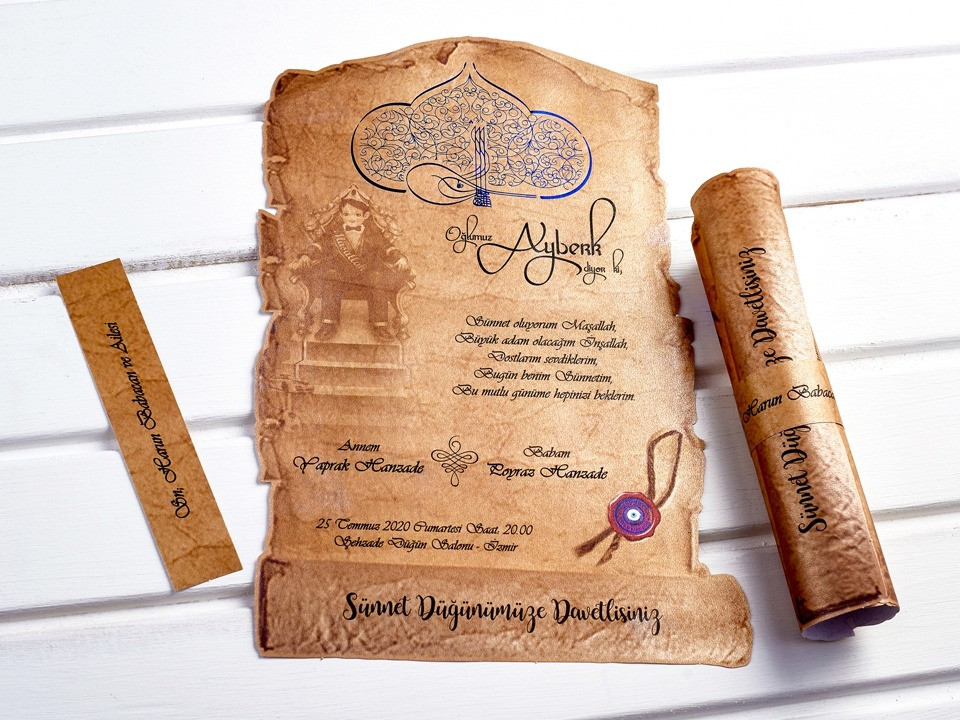 Oğlumuz
Ayberk
diyor ki;
Maşallah
Sünnet oluyorum Maşallah,
Büyük adam olacağım İnşallah,
Dostlarım sevdiklerim,
Bugün benim Sünnetim,
Bu mutlu günüme hepinizi beklerim.
Annem
Yaprak Hanzade
Babam
Poyraz Hanzade
25 Temmuz 2020 Cumartesi Saat: 20.00
Şehzade Düğün Salonu - İzmir
Sünnet Düğünümüze Davetlisiniz
Sn; Harun Babacan ve Ailesi
Sünnet Düğ
ze Davetlisiniz
Harun Babaca